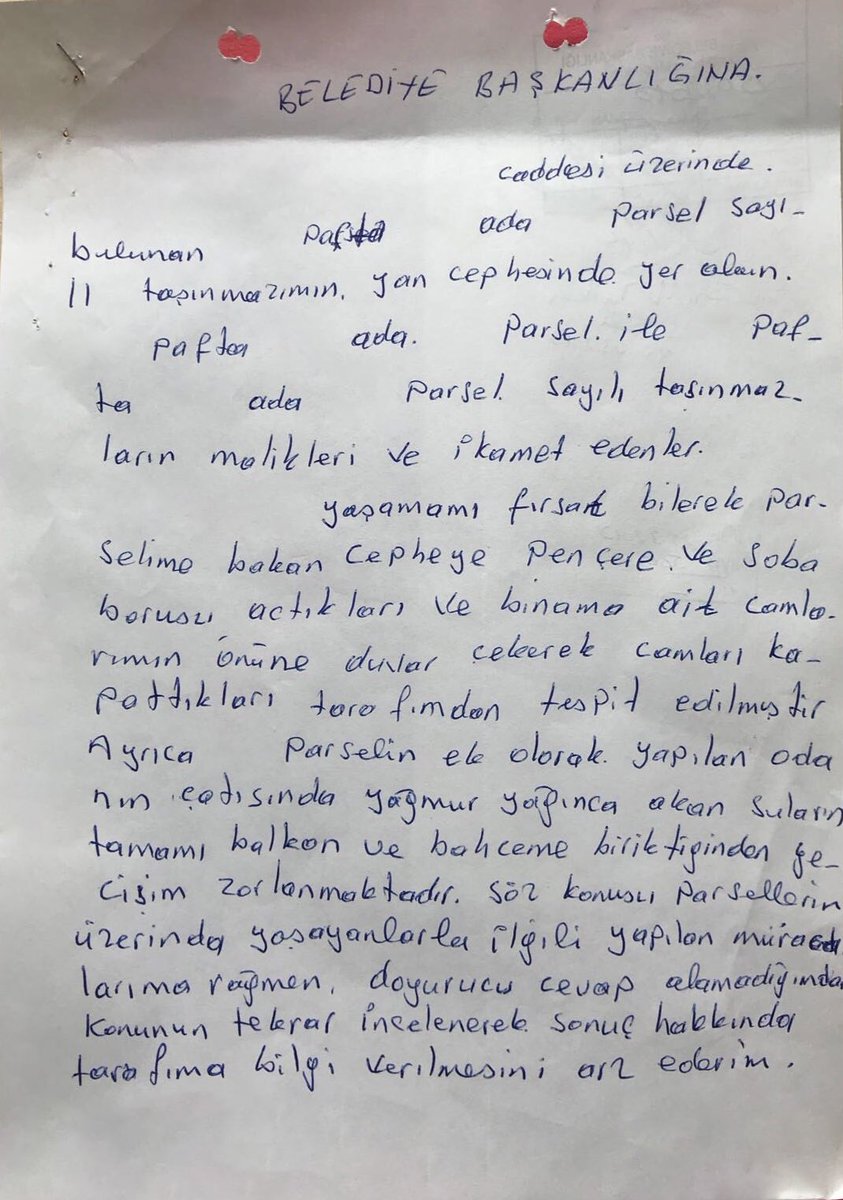 BELEDİYE BAŞKANLIĞINA.
caddesi üzerinde.
bulunan pafta ada parsel sayı-
lı taşınmazımın, yan cephesinde yer alan.
pafta ada. Parsel. ile Paf-
ta ada parsel sayılı taşınmaz-
ların malikleri ve ikamet edenler.
yaşamamı fırsat bilerek par-
selime bakan cepheye pençere ve soba
borusu actıkları ve binama ait camla-
rımın önüne duvar çekerek camları ka-
pattıkları tarafımdan tespit edilmiştir
Ayrıca parselin ek olarak yapılan oda
nın çatısında yağmur yağınca akan suların
tamamı balkon ve bahceme biriktiğinden ge-
cişim zorlanmaktadır. Söz konusu parsellerin
üzerinda yaşayanlarla ilgili yapılan müracaat
larıma rağmen, doyurucu cevap alamadığımdan
konunun tekrar incelenerek sonuç hakkında
tarafıma bilgi verilmesini arz ederim.